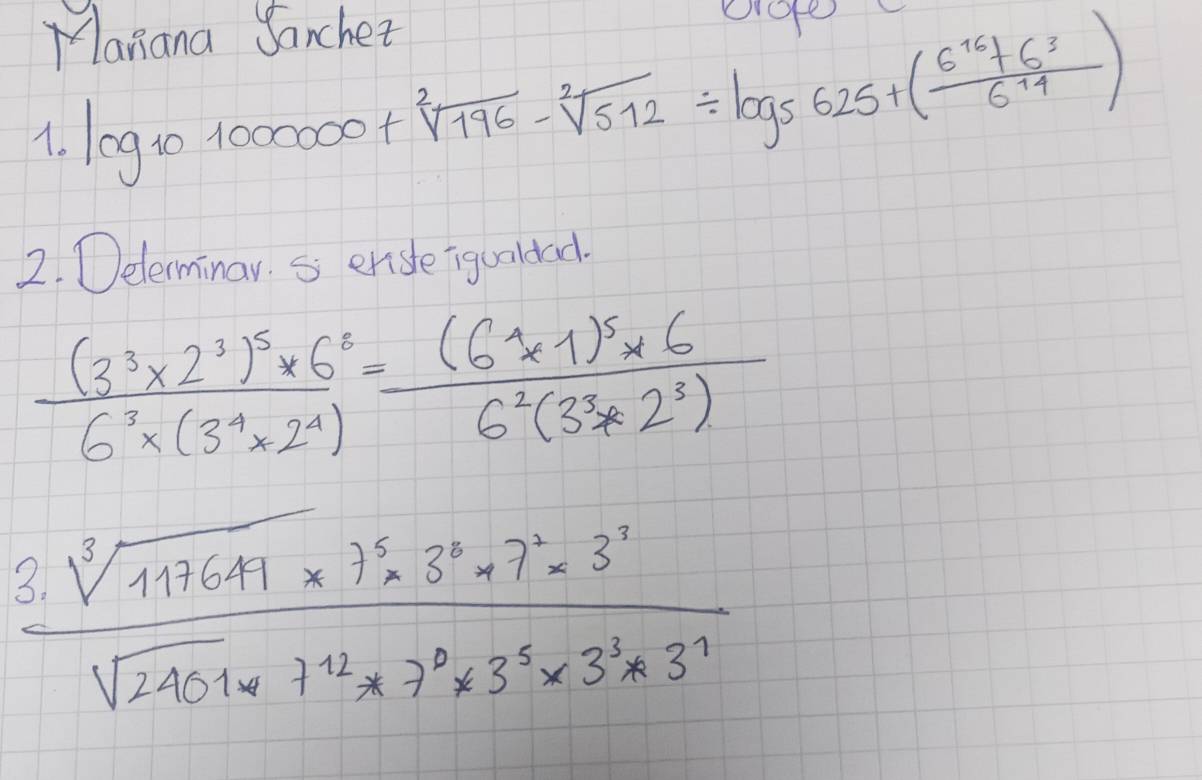 Mariana Sanchez Profe
1. log10 1000000 + ²√196 - ²√512 ÷ log5 625 + (6^16 + 6^3 / 6^14)
2. Determinar. si existe igualdad.
(3^3 x 2^3)^5 * 6^8 / 6^3 x (3^4 x 2^4) = (6^4 * 1)^5 * 6 / 6^2 (3^3 * 2^3)
3. ³√117649 * 7^5 * 3^8 * 7^7 * 3^3
√2401 * 7^12 * 7^0 * 3^5 * 3^3 * 3^1